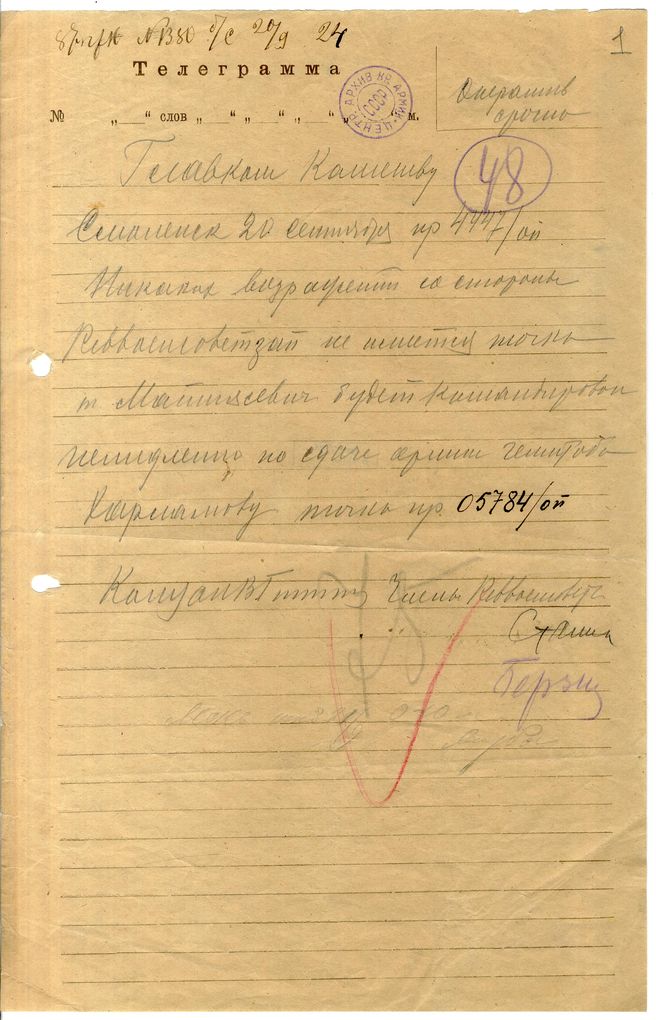 № 1380 с/с 20/9 24
1
Телеграмма
№ „ “ слов „ “ „ “ „ “ „ м.
ЦЕНТР. АРХИВ КР. АРМИИ
СССР
Оператив
срочно
Главком Каменеву
48
Смоленск 20 сентября нр 4447/оп
Никаких возражений со стороны
Реввоенсоветзап не имеется точка
т. Матиясевич будет командирован
немедленно по сдаче армии
Харламову точка нр 05784/оп
Командзап Гиттис Члены Реввоенсовета
Берзин